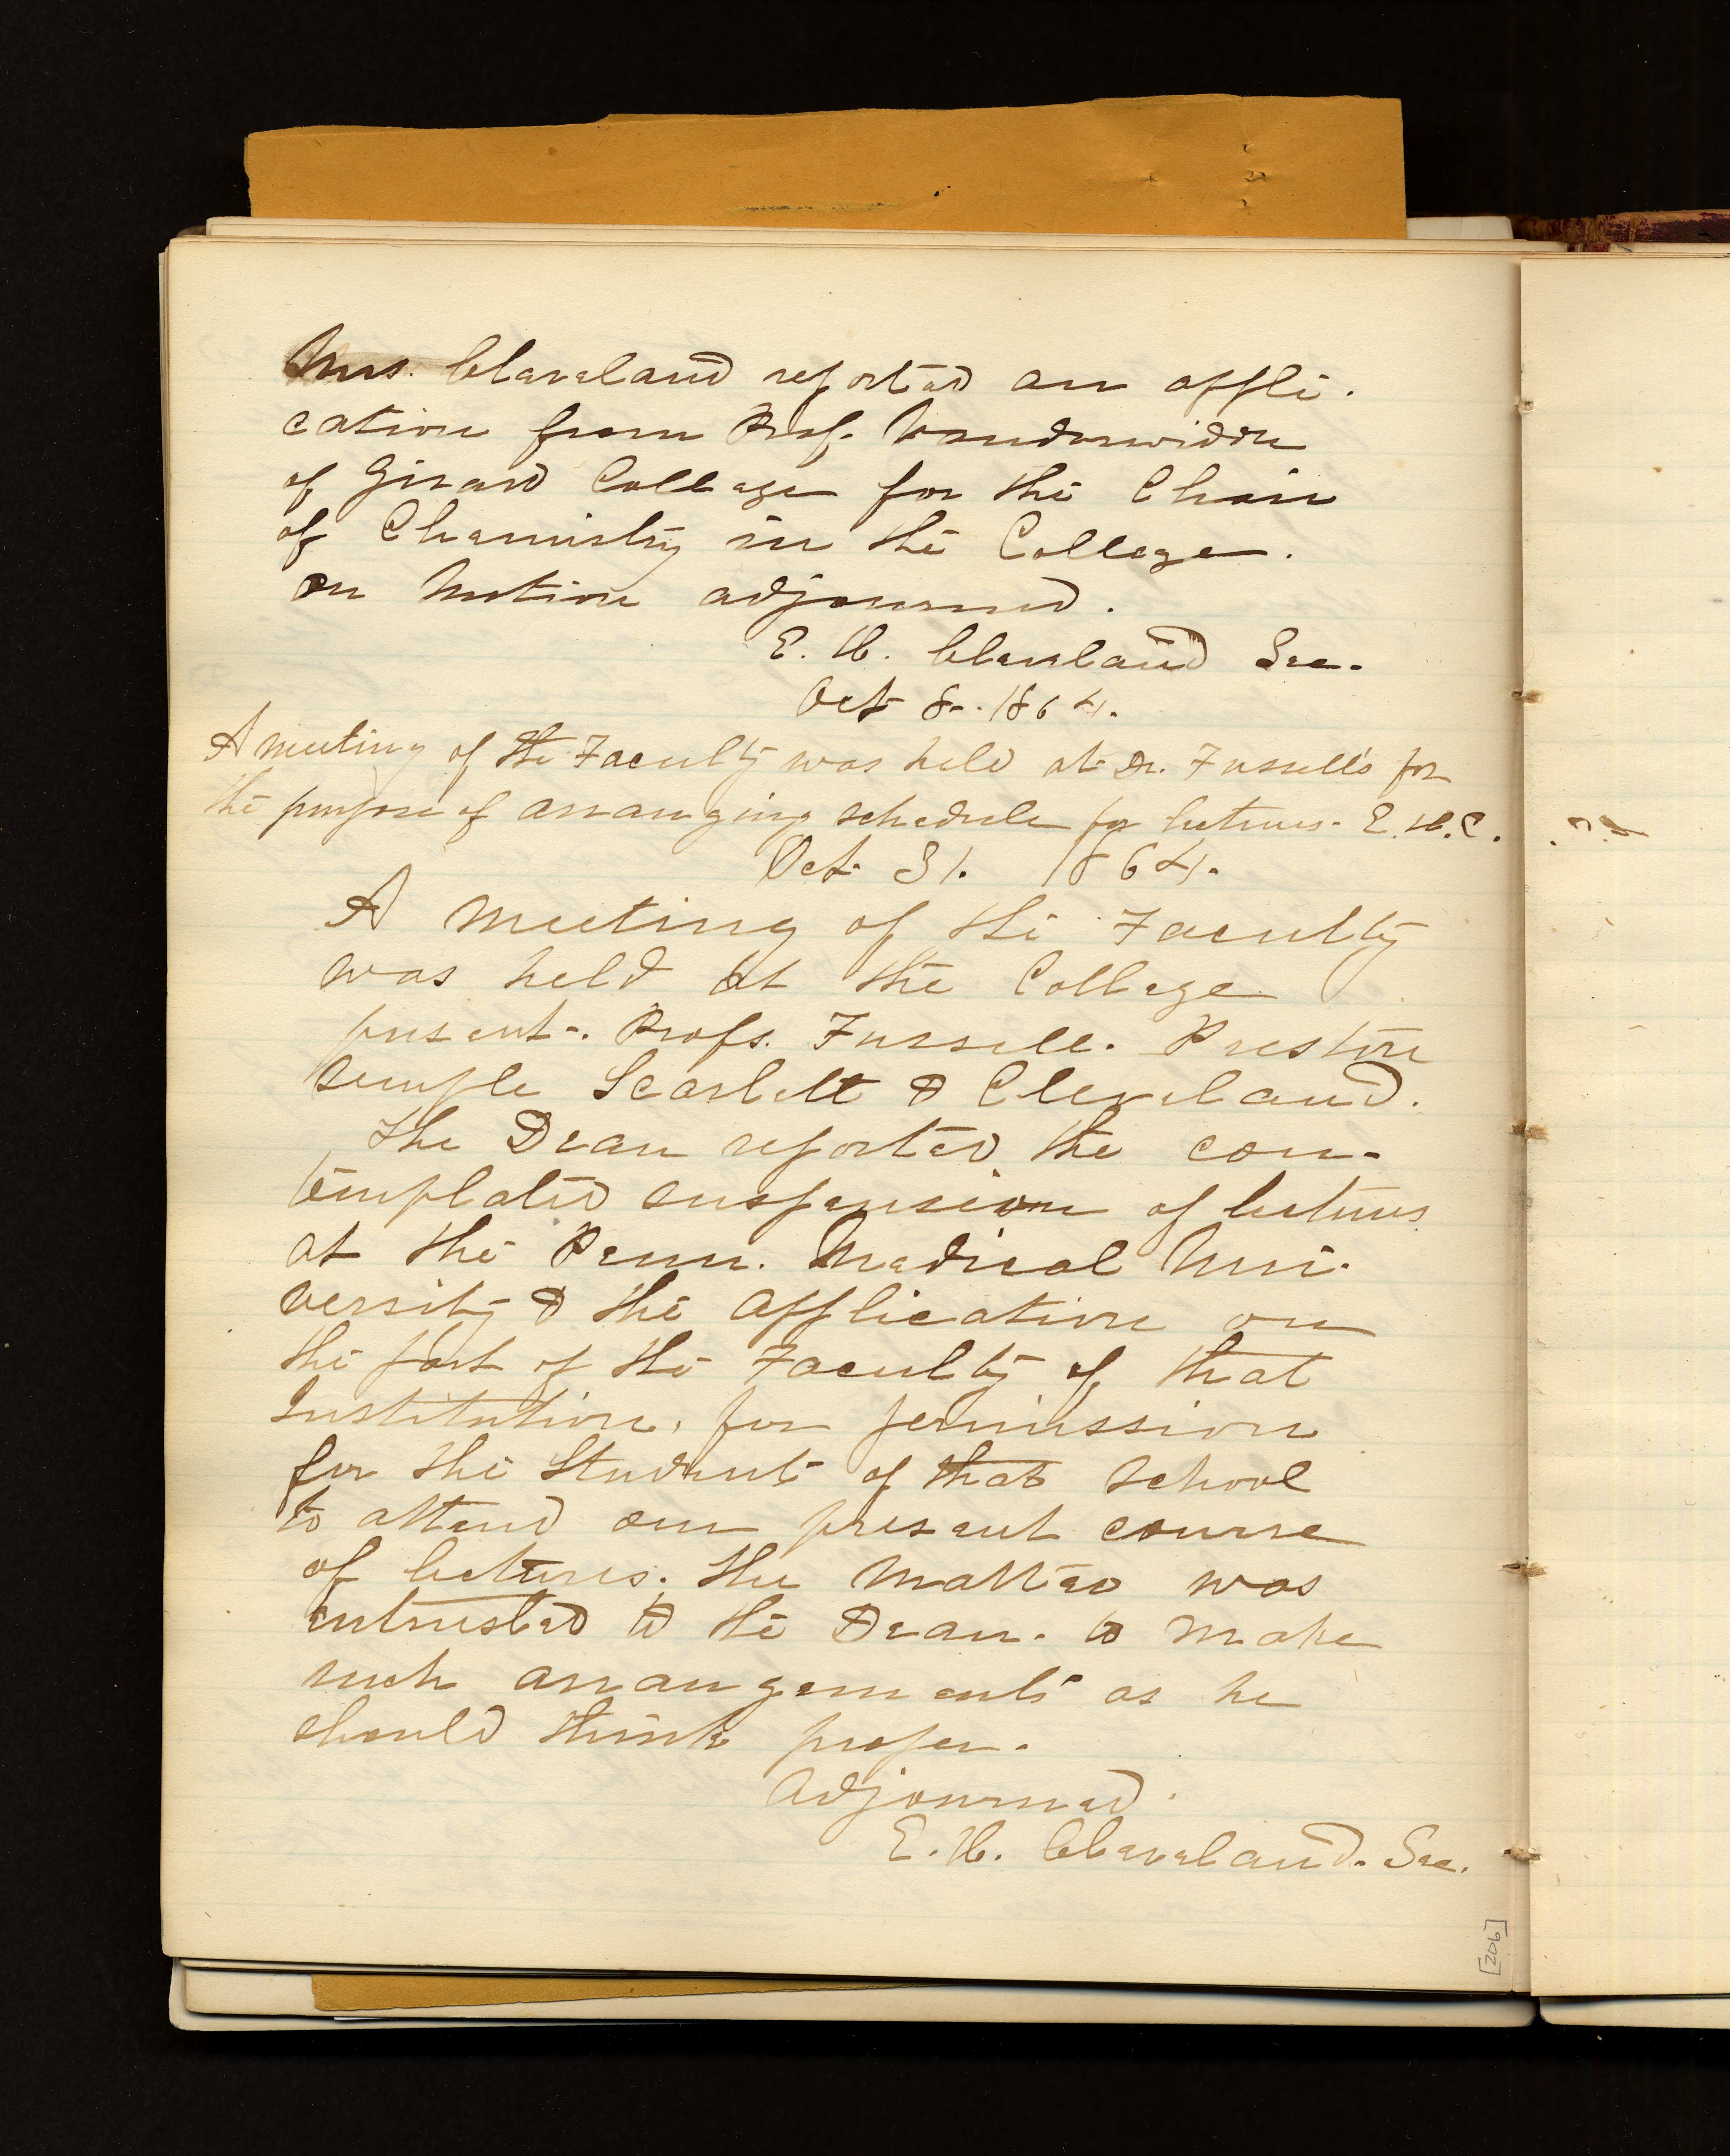 Mrs. Cleveland reported an appli-
cation from Prof. Vanderwidde
of Girard College for the Chair
of Chemistry in the College.
On Motion adjourned.
E. H. Cleveland Sec.
Oct 8. 1864.
A meeting of the Faculty was held at Dr. Fussell's for
the purpose of arranging schedule for lectures. E. H. C.
Oct. 31. 1864.
A meeting of the Faculty
was held at the College
present. Profs. Fussell. Preston
Semple Scarlett & Cleveland.
The Dean reported the con-
templated suspension of lectures
at the Penn. Medical Uni-
versity & the application on
the part of the Faculty of that
Institution, for permission
for the Students of that School
to attend our present course
of lectures. The Matter was
intrusted to the Dean. to make
such arrangements as he
should think proper.
Adjourned.
E. H. Cleveland. Sec.
[206]